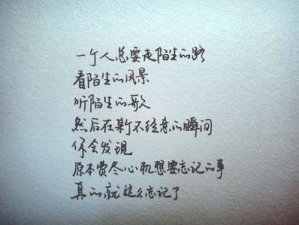 一个人总要走陌生的路
看陌生的风景
听陌生的歌
然后在某个不经意的瞬间
你会发现
原本费尽心机想要忘记的事
真的就这么忘记了